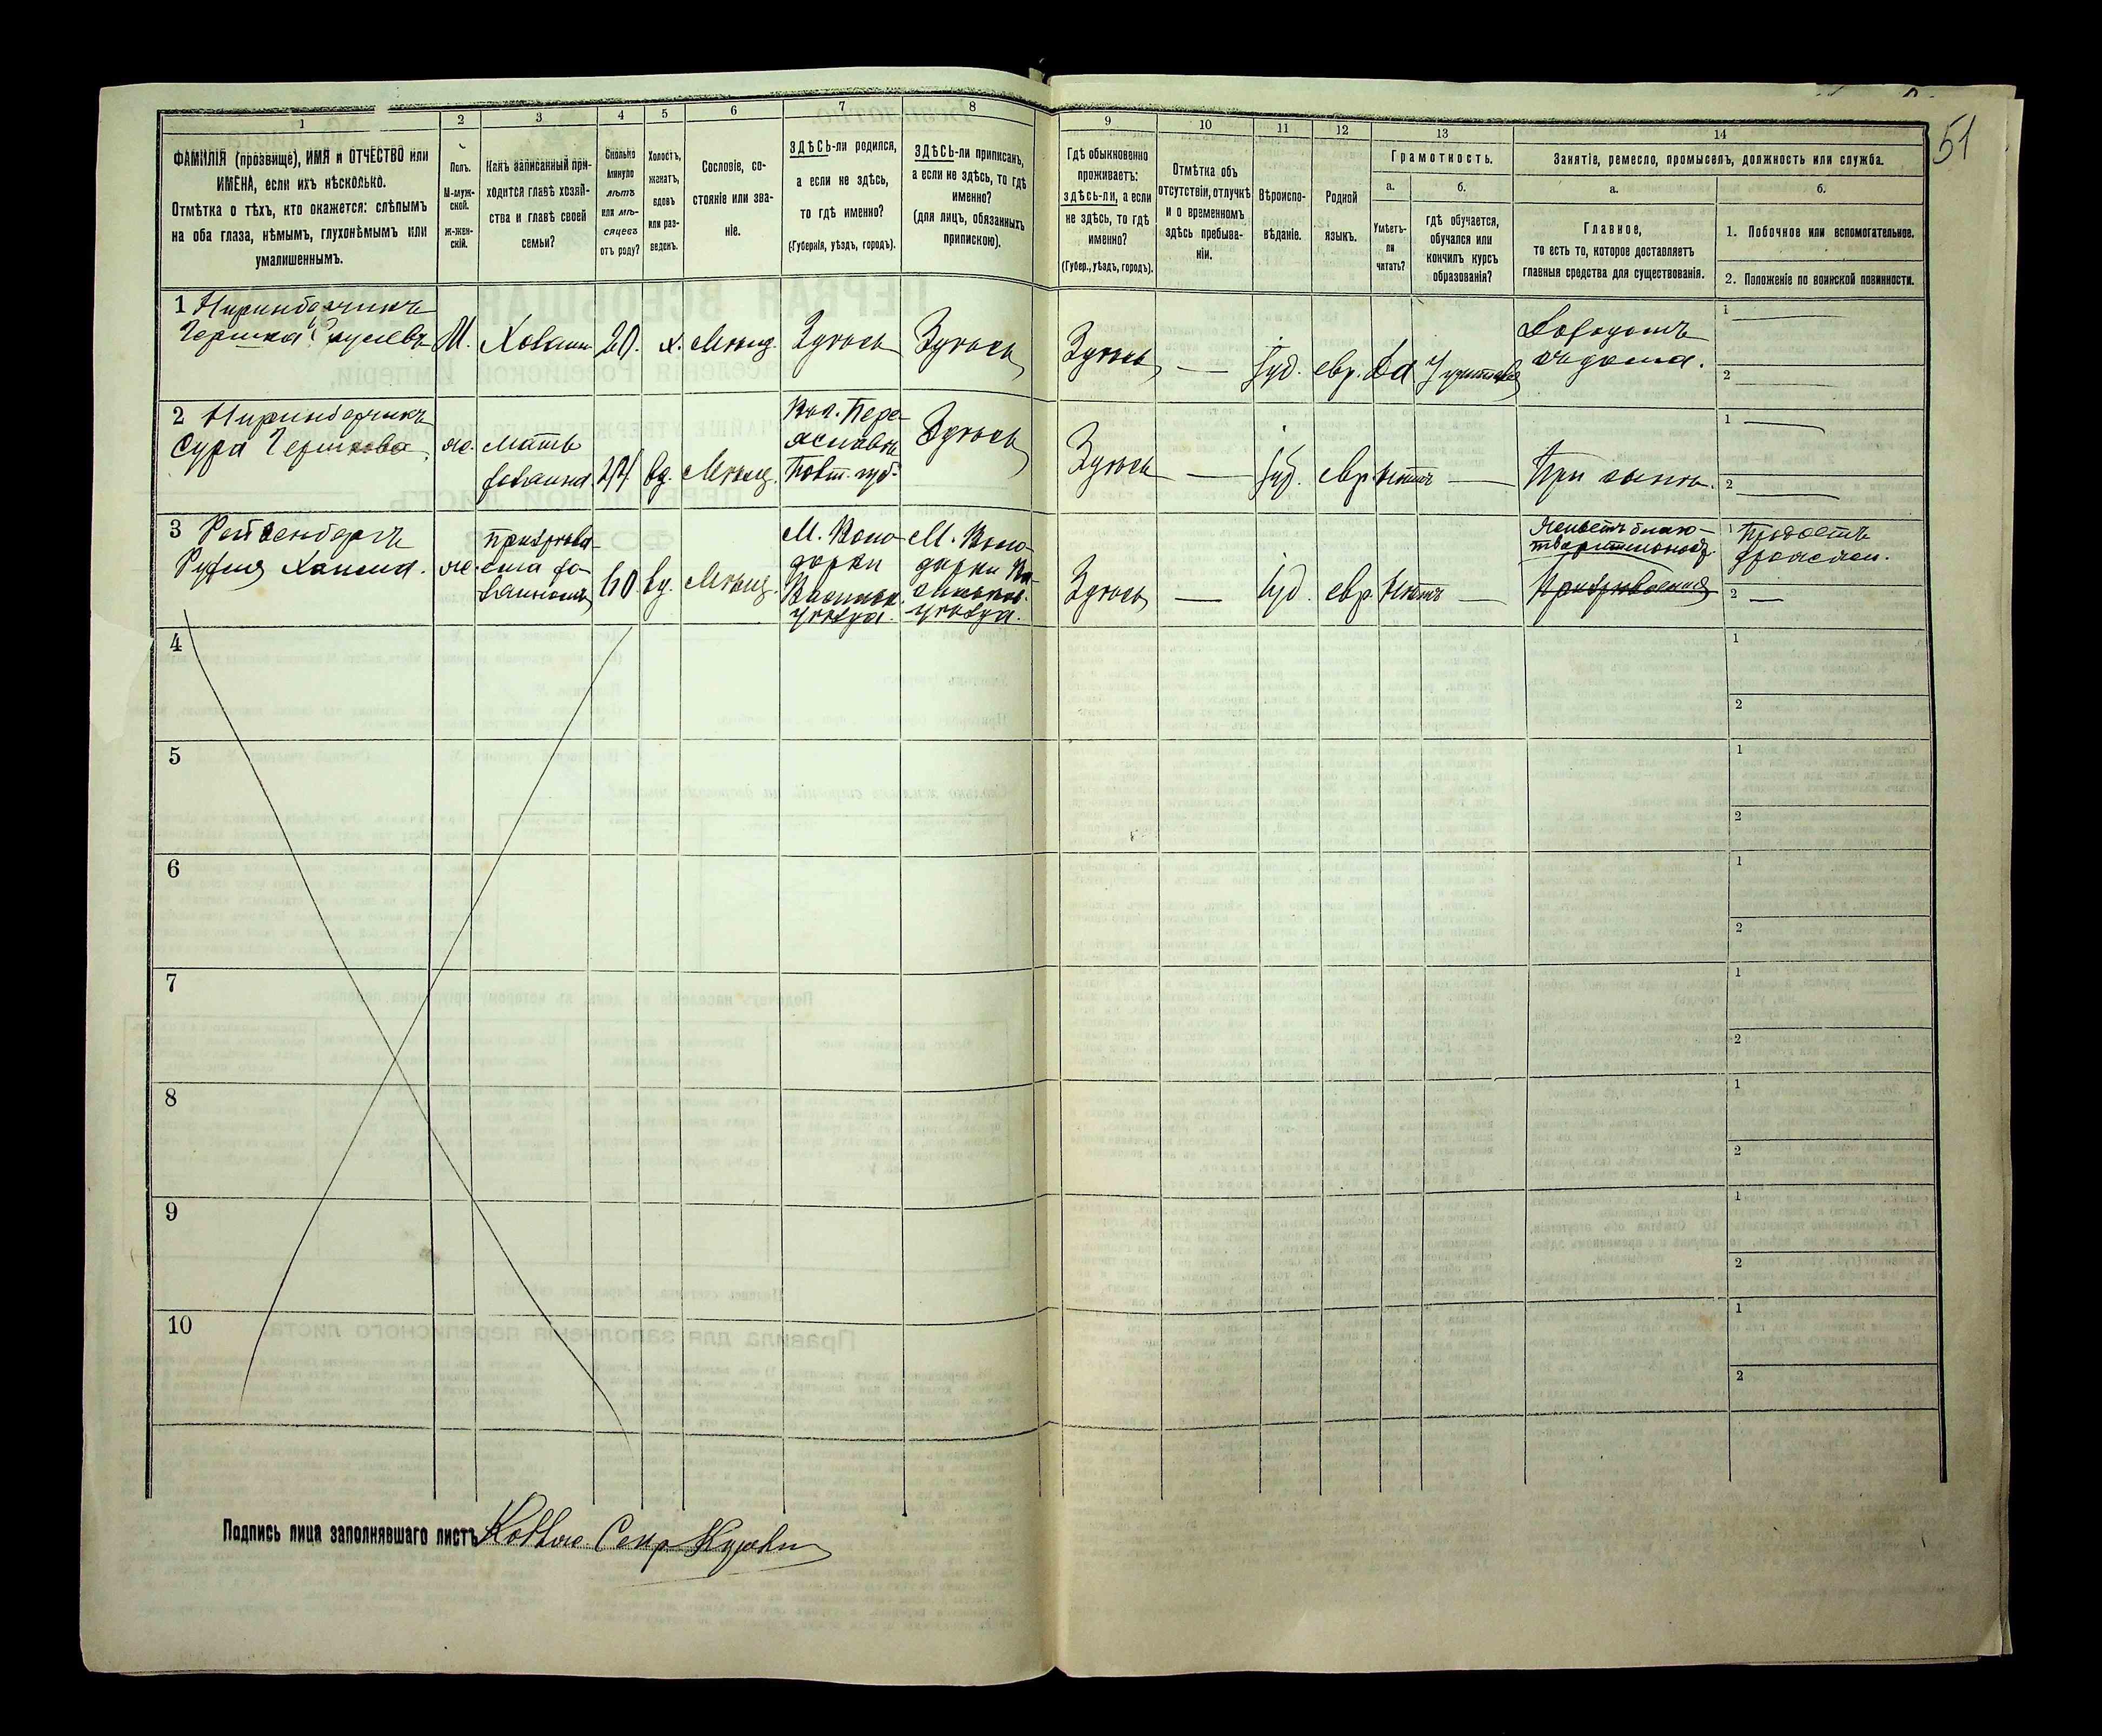 51
1 2 3 4 5 6 7 8 9 10 11 12 13 14
ФАМИЛІЯ (прозвище), ИМЯ и ОТЧЕСТВО или
ИМЕНА, если ихъ нѣсколько.
Отмѣтка о тѣхъ, кто окажется: слѣпымъ
на оба глаза, нѣмымъ, глухонѣмымъ или
умалишеннымъ.
Полъ.
М-муж-
ской.
Ж-жен-
скій.
Какъ записанный при-
ходится главѣ хозяй-
ства и главѣ своей
семьи?
Сколько
минуло
лѣтъ
или мѣ-
сяцевъ
отъ роду?
Холостъ,
женатъ,
вдовъ
или раз-
веденъ.
Сословіе, со-
стояніе или зва-
ніе.
ЗДѢСЬ-ли родился,
а если не здѣсь,
то гдѣ именно?
(Губернія, уѣздъ, городъ).
ЗДѢСЬ-ли приписанъ,
а если не здѣсь, то гдѣ
именно?
(для лицъ, обязанныхъ
припискою).
Гдѣ обыкновенно
проживаетъ:
здѣсь-ли, а если
не здѣсь, то гдѣ
именно?
(Губер., уѣздъ, городъ).
Отмѣтка объ
отсутствіи, отлучкѣ
и о временномъ
здѣсь пребыва-
ніи.
Вѣроиспо-
вѣданіе.
Родной
языкъ.
Грамотность.
а.
Умѣетъ-
ли
читать?
б.
гдѣ обучается,
обучался или
кончилъ курсъ
образованія?
Занятіе, ремесло, промыселъ, должность или служба.
а.
Главное,
то есть то, которое доставляетъ
главныя средства для существованія.
б.
1. Побочное или вспомогательное.
2. Положеніе по воинской повинности.
1
Гершка
М. Хозяин 20. х. Мѣщ. Здѣсь Здѣсь Здѣсь — Іуд. евр. Да
Доходомъ
съ дома.
1 —
2 —
2
Сура Гершкова
ж. мать
хозяина вд. Мѣщ.
Пере-
яславъ
Полт. губ.
Здѣсь Здѣсь — Іуд. евр. Нѣтъ — При сынѣ.
1 —
2 —
3 Рейзенбергъ
Руфля Хаимов.
ж.
хозяиномъ
60 вд. Мѣщ.
М. Воло-
дарки
Васильк.
уѣзда.
М. Воло-
дарки Ва-
сильков.
уѣзда.
Здѣсь — Іуд. евр. Нѣтъ —
Живетъ благо-
творительност.
1 Продаетъ
дрожжи.
2 —
4 1
2
5 1
2
6 1
2
7 1
2
8 1
2
9 1
2
10 1
2
Подпись лица заполнявшаго листъ